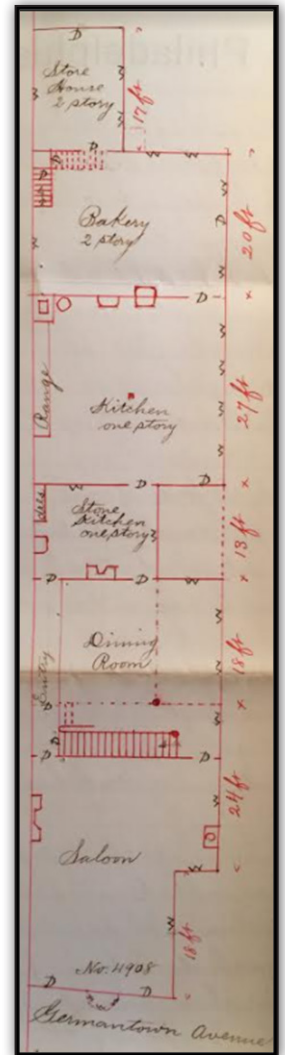 D
Store
House
2 story
17 ft
D
D
W
W
W
Bakery
2 story
D
20 ft
D
Range
Kitchen
one story
27 ft
D
D
Stone
Kitchen
one story
13 ft
D
W
Dining
Room
18 ft
Entry
D
D
D
24 ft
Saloon
W
18 ft
No. 4908
D
D
Germantown Avenue